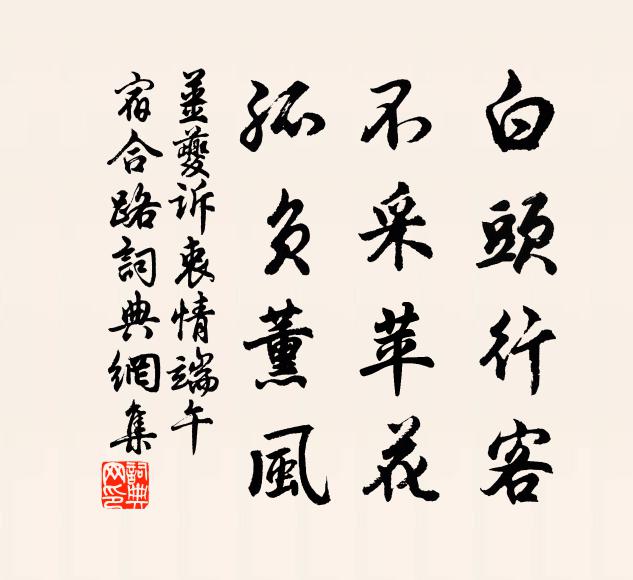 白頭行客
不采苹花
孤負薰風
姜夔訴衷情端午
宿合路詞典網集
詞典
网印